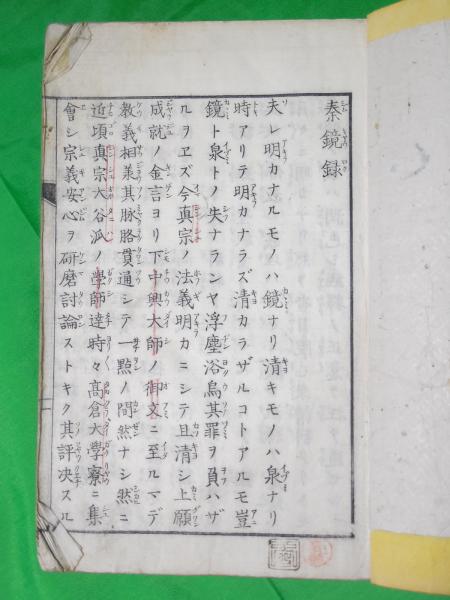 秦鏡録
夫レ明カナルモノハ鏡ナリ清キモノハ泉ナリ
時アリテ明カナラズ清カラザルコトアルモ豈
鏡ト泉トノ失ナランヤ浮塵浴烏其罪ヲ負ハザ
ルヲヱズ今真宗ノ法義明カニシテ且清シ上願
成就ノ金言ヨリ下中興大師ノ御文ニ至ルマデ
教義相兼其脉胳貫通シテ一點ノ間然ナシ然ニ
近頃真宗大谷派ノ學師達時々髙倉大學寮ニ集
會シ宗義安心ヲ研磨討論ストキク其評决スル